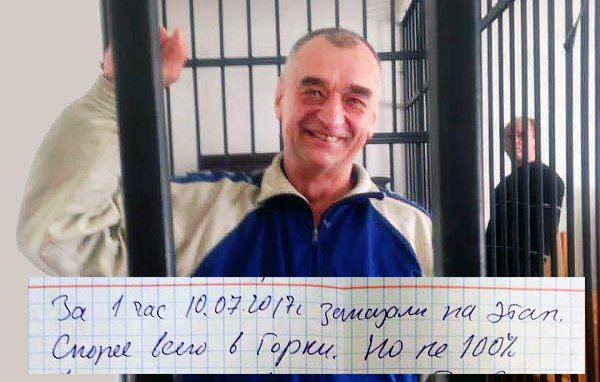 За 1 час 10.07.2017г заказали на этап.
Скорее всего в Горки. Но не 100%